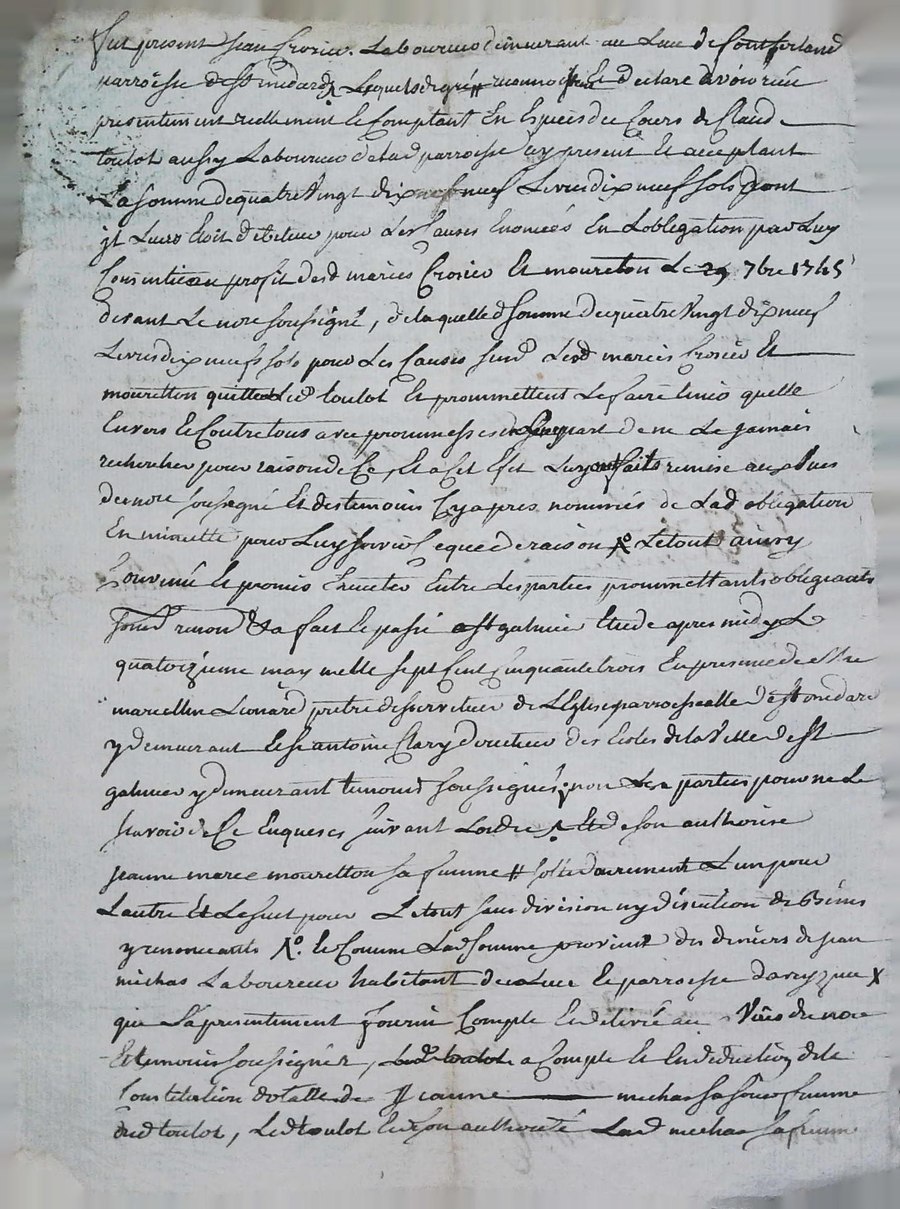 fut present Jean Crozier Laboureur demeurant au Lieu de
parroisse de St medard Lequel de gré reconnoit Et declare avoir reçu
presentement reellement Et Comptant En Especes de Cours de Claude
toulot aussy Laboureur de Lad parroisse icy present Et acceptant
La somme de quatre Vingt dix neuf Livres dix neuf sols dont
jl Luers Etoit debiteur pour Les Causes Enoncées En Lobligation par Luy
Consentie au profit desd mariés Crozier Et mouretton Le 29 7bre 1745
devant Le nore soussigné, de laquelle d somme de quatre Vingt dix neuf
Livres dix neuf sols pour Les Causes susd Lesd mariés Crozier Et
mouretton quittent Led toulot Et promettent Le faire tenir quitte
Envers Et Contre tous avec promesses de ne Le jamais
rechercher pour raison de Ce, Et a Cet Efet Luy ont faits remise aux Vues
du nore soussigné Et des temoins Cy apres nommés de Lad obligation
En minutte pour Luy servir Ce que de raison Le tout ainsy
Convenu Et promis Executer Entre Les parties promettants obligeants
soumd renond &a fait Et passé a St galmier Etude apres midy Le
quatorzieme may mille sept Cent Cinquante trois En presence de Mre
marcellin Lionard pretre desserviteur de LEglise parroissialle de St medard
y demeurant Et Sr antoine Clary directeur des Ecoles de la Ville de St
galmier y demeurant temoins soussignés, non Les parties pour ne Le
scavoir de Ce Enquises suivant Lordre Et de son authorité
jeanne marie mouretton sa femme # solidairement Lun pour
Lautre Et Le seul pour Le tout sans division ny discution de Biens
y renonceants Et Comme Lad somme provient des deniers de jean
michas Laboureur habitant du Lieu Et parroisse
qui La presentement fourni Compté Et delivré au Vües du nore
Et temoins soussignés, Led toulot a Compte Et En deduction de la
Constitution dotalle de jeanne michas sa sœur femme
dud toulot, Led toulot Et de son authorité Lad michas sa femme